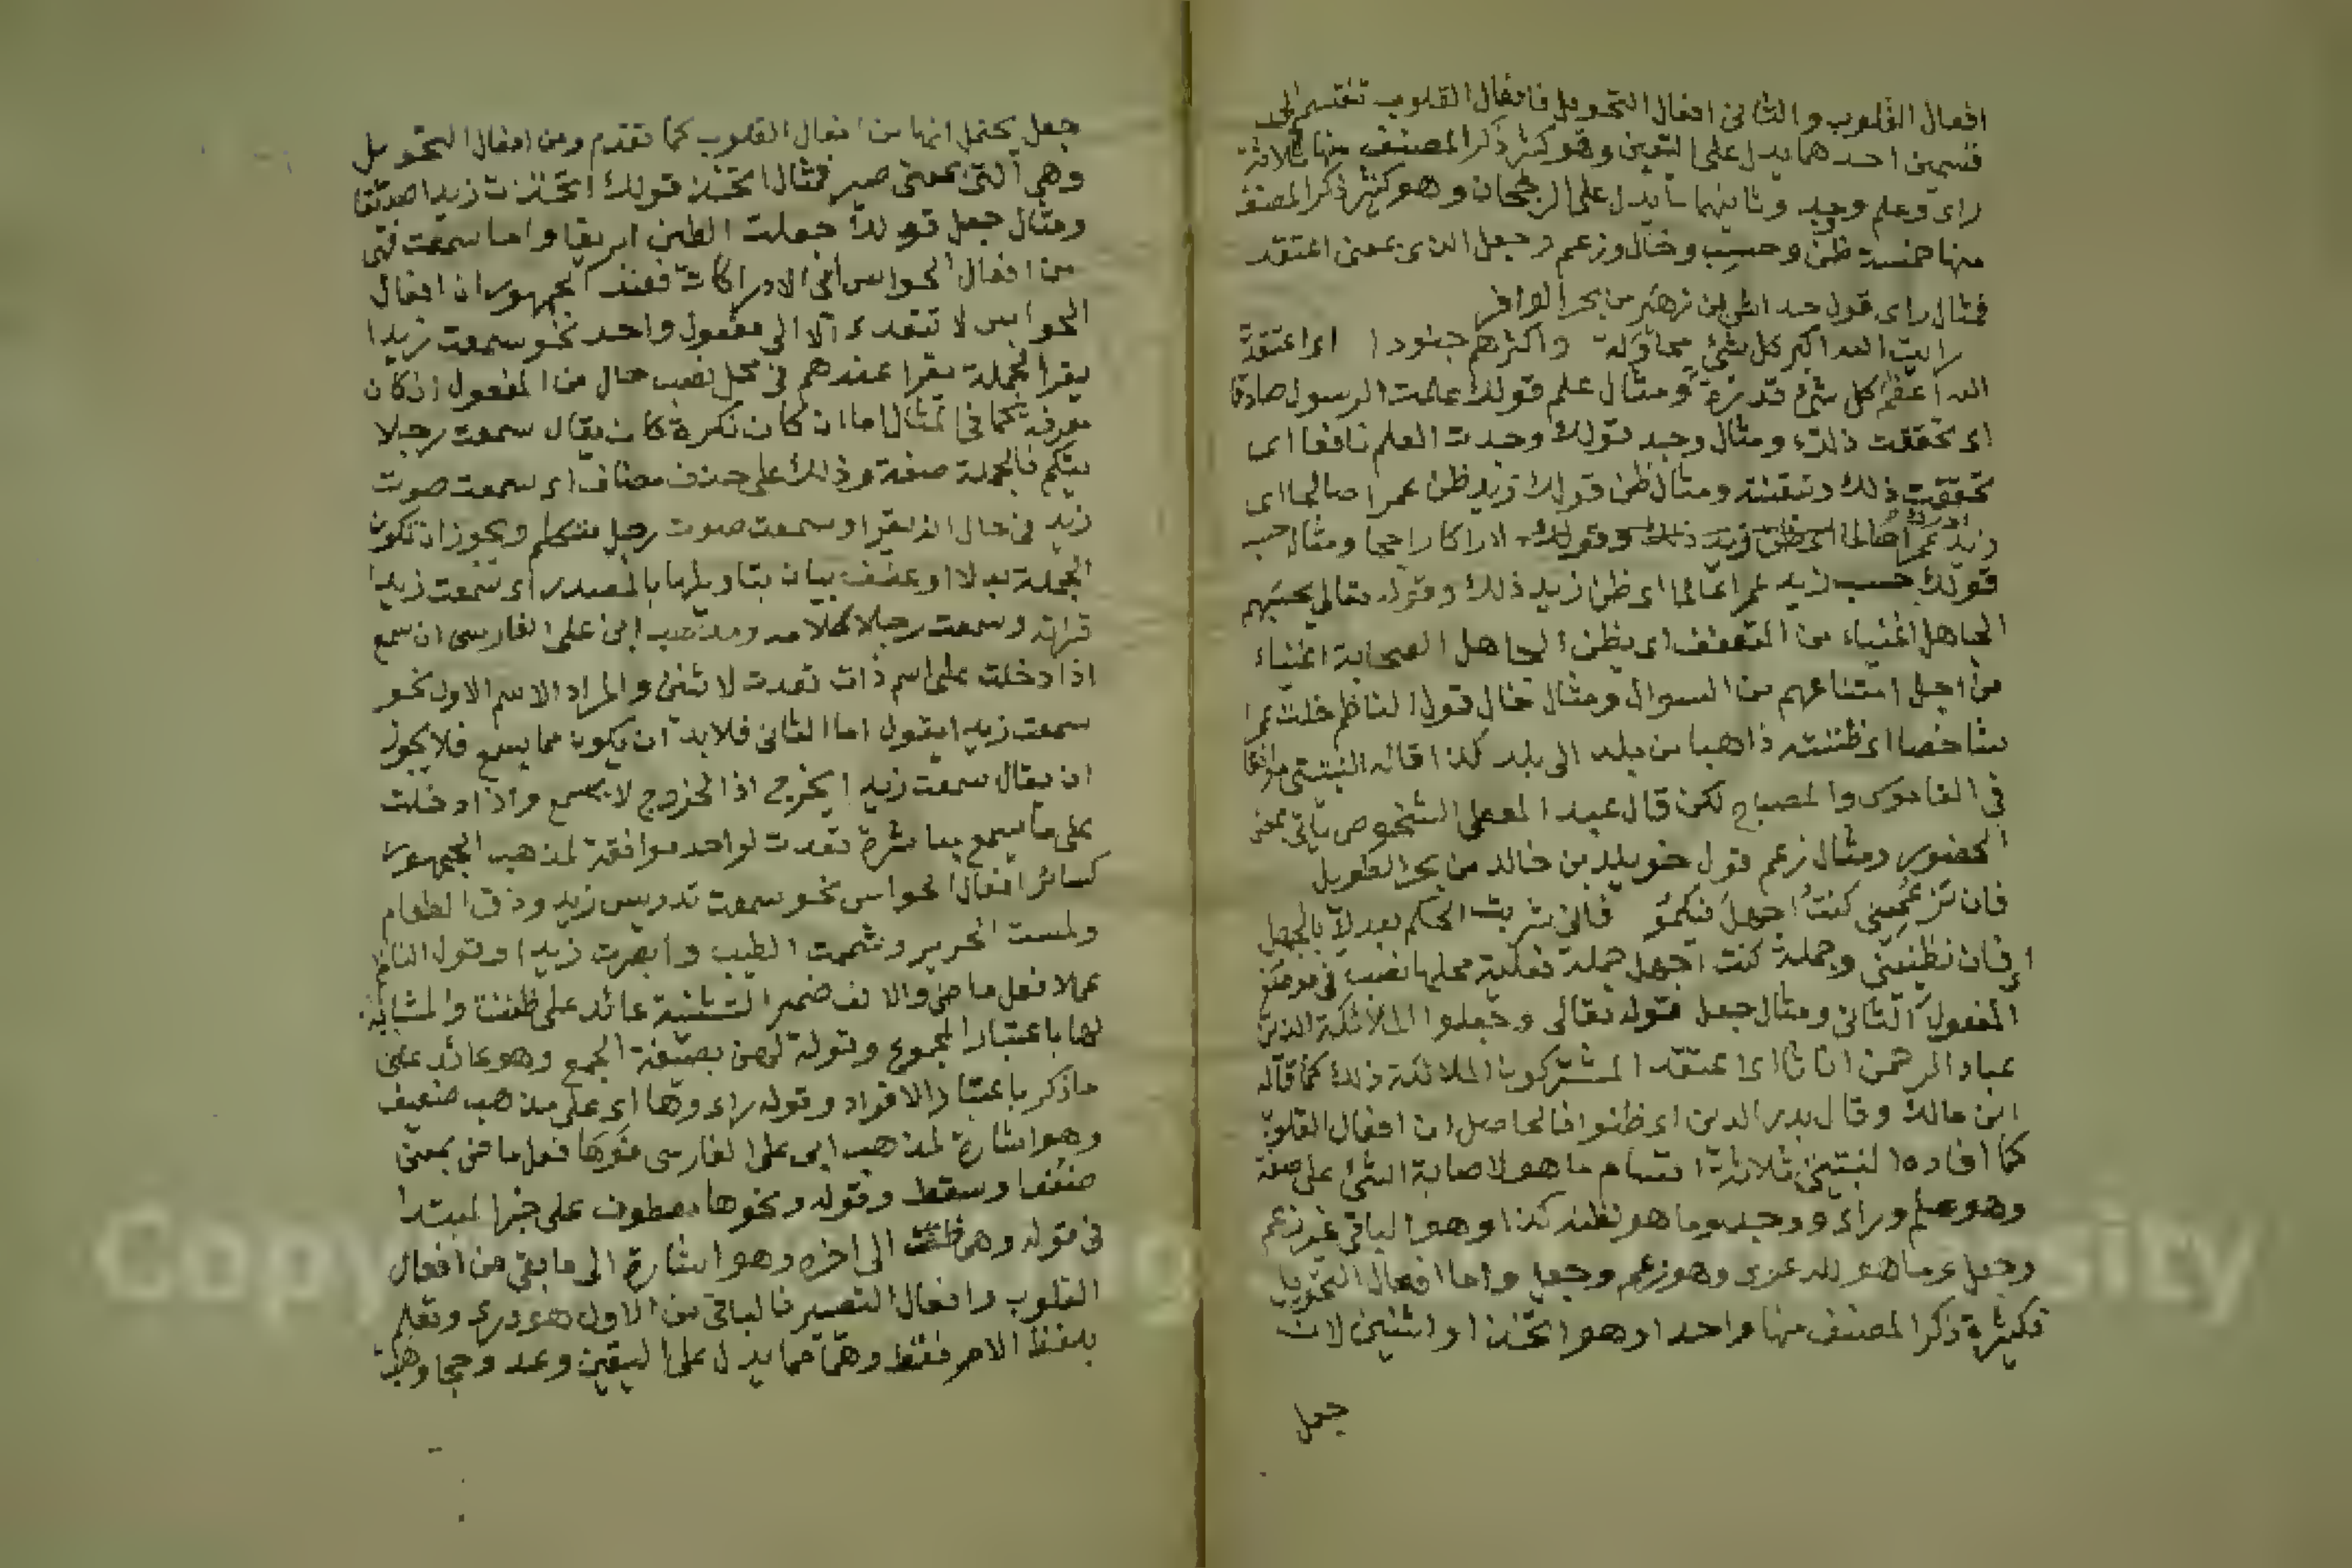 افعال القلوب والثاني افعال التحويل فافعال القلوب تنقسم الى
قسمين احدهما يدل على اليقين وهو كثير ذكر المصنف منها ثلاثة
راى وعلم ووجد وثانيهما ما يدل على الرجحان وهو كثير ذكر المصنف
منها خمسة ظن وحسب وخال وزعم وجعل الذى بمعنى اعتقد
فمثال راى قول خداش بن زهير من بحر الوافر
رايت الله اكبر كل شئ محاولة واكثرهم جنودا اى اعتقدت
الله اعظم كل شئ قدرة ومثال علم قولك علمت الرسول صادقا
اى تحققت ذلك ومثال وجد قولك وجدت العلم نافعا اى
تحققت ذلك وتيقنته ومثال ظن قولك زيد ظن عمرا صالحا اى
زيد عمرا صالحا اى ظن زيد ذلك وقولك ادراكا راجحا ومثال حسب
قولك حسب زيد عمرا عالما اى ظن زيد ذلك وقوله تعالى يحسبهم
الجاهل اغنياء من التعفف اى يظن الجاهل الصحابة اغنياء
من اجل امتناعهم من السوال ومثال خال قول الناظم خلت عمرا
شاخصا اى ظننته ذاهبا من بلد الى بلد كذا قاله النبتيتى موافقا
فى القاموس والمصباح لكن قال عبد المعطى الشخوص ياتى بمعنى
الحضور ومثال زعم قول خويلد بن خالد من بحر الطويل
فان تزعمينى كنت اجهل فيكمو فانى شربت الحلم بعدك بالجهل
اى فان تظنينى وجملة كنت اجهل جملة فعلية محلها نصب فى موضع
المفعول الثانى ومثال جعل قوله تعالى وجعلوا الملائكة الذين
عباد الرحمن اناثا اى اعتقد المشركون الملائكة ذلك كما قاله
ابن مالك وقال بدر الدين اى ظنوا فالحاصل ان افعال القلوب
كما افاده النبتيتى ثلاثة اقسام ما هو لاصابة الشئ على صفة
وهو علم وراى ووجد وما هو لظنه كذا وهو الباقى غير زعم
وجعل وما هو للدعوى وهو زعم وجعل واما افعال التحويل
فكثيرة ذكر المصنف منها واحدا وهو اتخذ او اثنين لان
جعل
جعل يحتمل انها من افعال القلوب كما تقدم ومن افعال التحويل
وهى التى بمعنى صير فمثال اتخذ قولك اتخذت زيدا صديقا
ومثال جعل قولك جعلت الطين ابريقا واما سمعت فهى
من افعال الحواس اى الادراكات فعند الجمهور ان افعال
الحواس لا تتعدى الا الى مفعول واحد نحو سمعت زيدا
يقرا فجملة يقرا عندهم فى محل نصب حال من المفعول ان كان
معرفة كما فى المثال اما ان كان نكرة كان يقال سمعت رجلا
يتكلم فالجملة صفة وذلك على حذف مضاف اى سمعت صوت
زيد فى حال انه يقرا وسمعت صوت رجل متكلم ويجوز ان تكون
الجملة بدلا او عطف بيان بتاويلها بالمصدر اى سمعت زيدا
قراته وسمعت رجلا كلامه ومذهب ابى على الفارسى ان سمع
اذا دخلت على اسم ذات تعدت لاثنين والمراد الاسم الاول نحو
سمعت زيدا يقول اما الثانى فلا بد ان يكون مما يسمع فلا يجوز
ان يقال سمعت زيدا يخرج اذ الخروج لا يسمع واذا دخلت
على ما يسمع مباشرة تعدت لواحد موافقة لمذهب الجمهور
كسائر افعال الحواس نحو سمعت تدريس زيد وذقت الطعام
ولمست الحرير وشممت الطيب وابصرت زيدا وقول الناظم
عملا فعل ماض والالف ضمير التثنية عائد على ظننت والمشابه
لها باعتبار المجموع وقوله لهن بصيغة الجمع وهو عائد على
ما ذكر باعتبار الافراد وقوله راى وها اى على مذهب ضعيف
وهو اشارة لمذهب ابى على الفارسى فوها فعل ماض بمعنى
ضعف او سقط وقوله ونحوها معطوف على خبر المبتدا
فى قوله وهى ظننت الى اخره وهو اشارة الى ما بقى من افعال
القلوب وافعال التصيير فالباقى من الاول هو درى وتعلم
بلفظ الامر فقط وهما مما يدل على اليقين وعد وحجا وهب